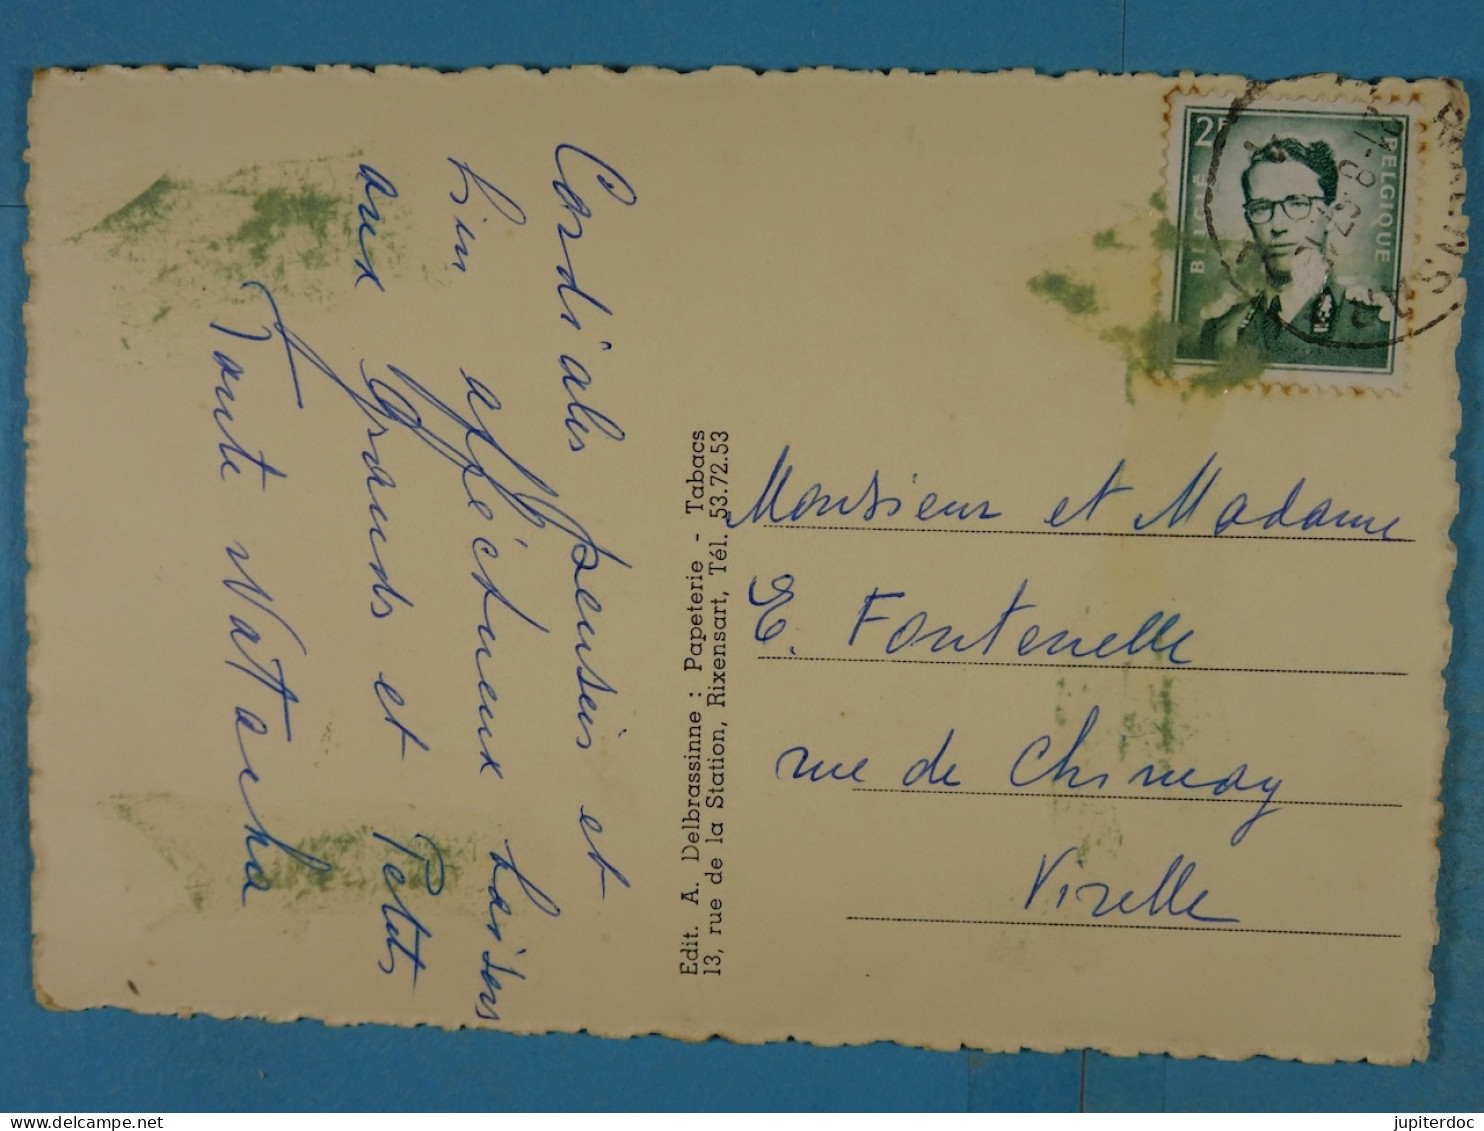 Cordiales pensées et
bien affectueux baisers
aux Grands et Petits
Tante Natacha
Edit. A. Delbrassinne : Papeterie - Tabacs
13, rue de la Station, Rixensart, Tél. 53.72.53
2F
BELGIË
BELGIQUE
Monsieur et Madame
E. Fontenelle
rue de Chimay
Virelle
jupiterdoc
www.delcampe.net